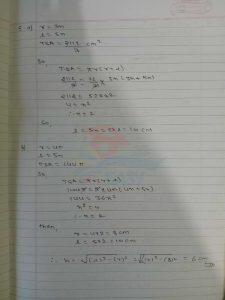 5. a) r = 3n
l = 5n
TSA = 2112/7 cm²
So,
TSA = πr(r+l)
2112/7 = 22/7 × 3n (3n+5n)
2112 = 528n²
4 = n²
∴ n = 2
So,
l = 5n = 5×2 = 10 cm
r = 4n
l = 5n
TSA = 144π
So
TSA = πr(r+l)
144π = π 4n (4n+5n)
144 = 36n²
n² = 4
∴ n = 2
then,
r = 4×2 = 8 cm
l = 5×2 = 10 cm
∴ h = √(l)²-(r)² = √(10)²-(8)² = 6 cm